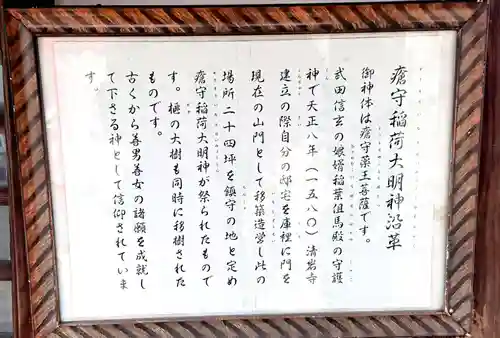 瘡守稲荷大明神沿革
御神体は瘡守薬王菩薩です。
武田信玄の娘婿稲葉但馬殿の守護
神で天正八年(一五八〇)清岩寺
建立の際自分の邸宅を庫裡に門を
現在の山門として移築造営し此の
場所二十四坪を鎮守の地と定め
瘡守稲荷大明神が祭られたもので
す。榧の大樹も同時に移樹された
ものです。
古くから善男善女の諸願を成就し
て下さる神として信仰されていま
す。